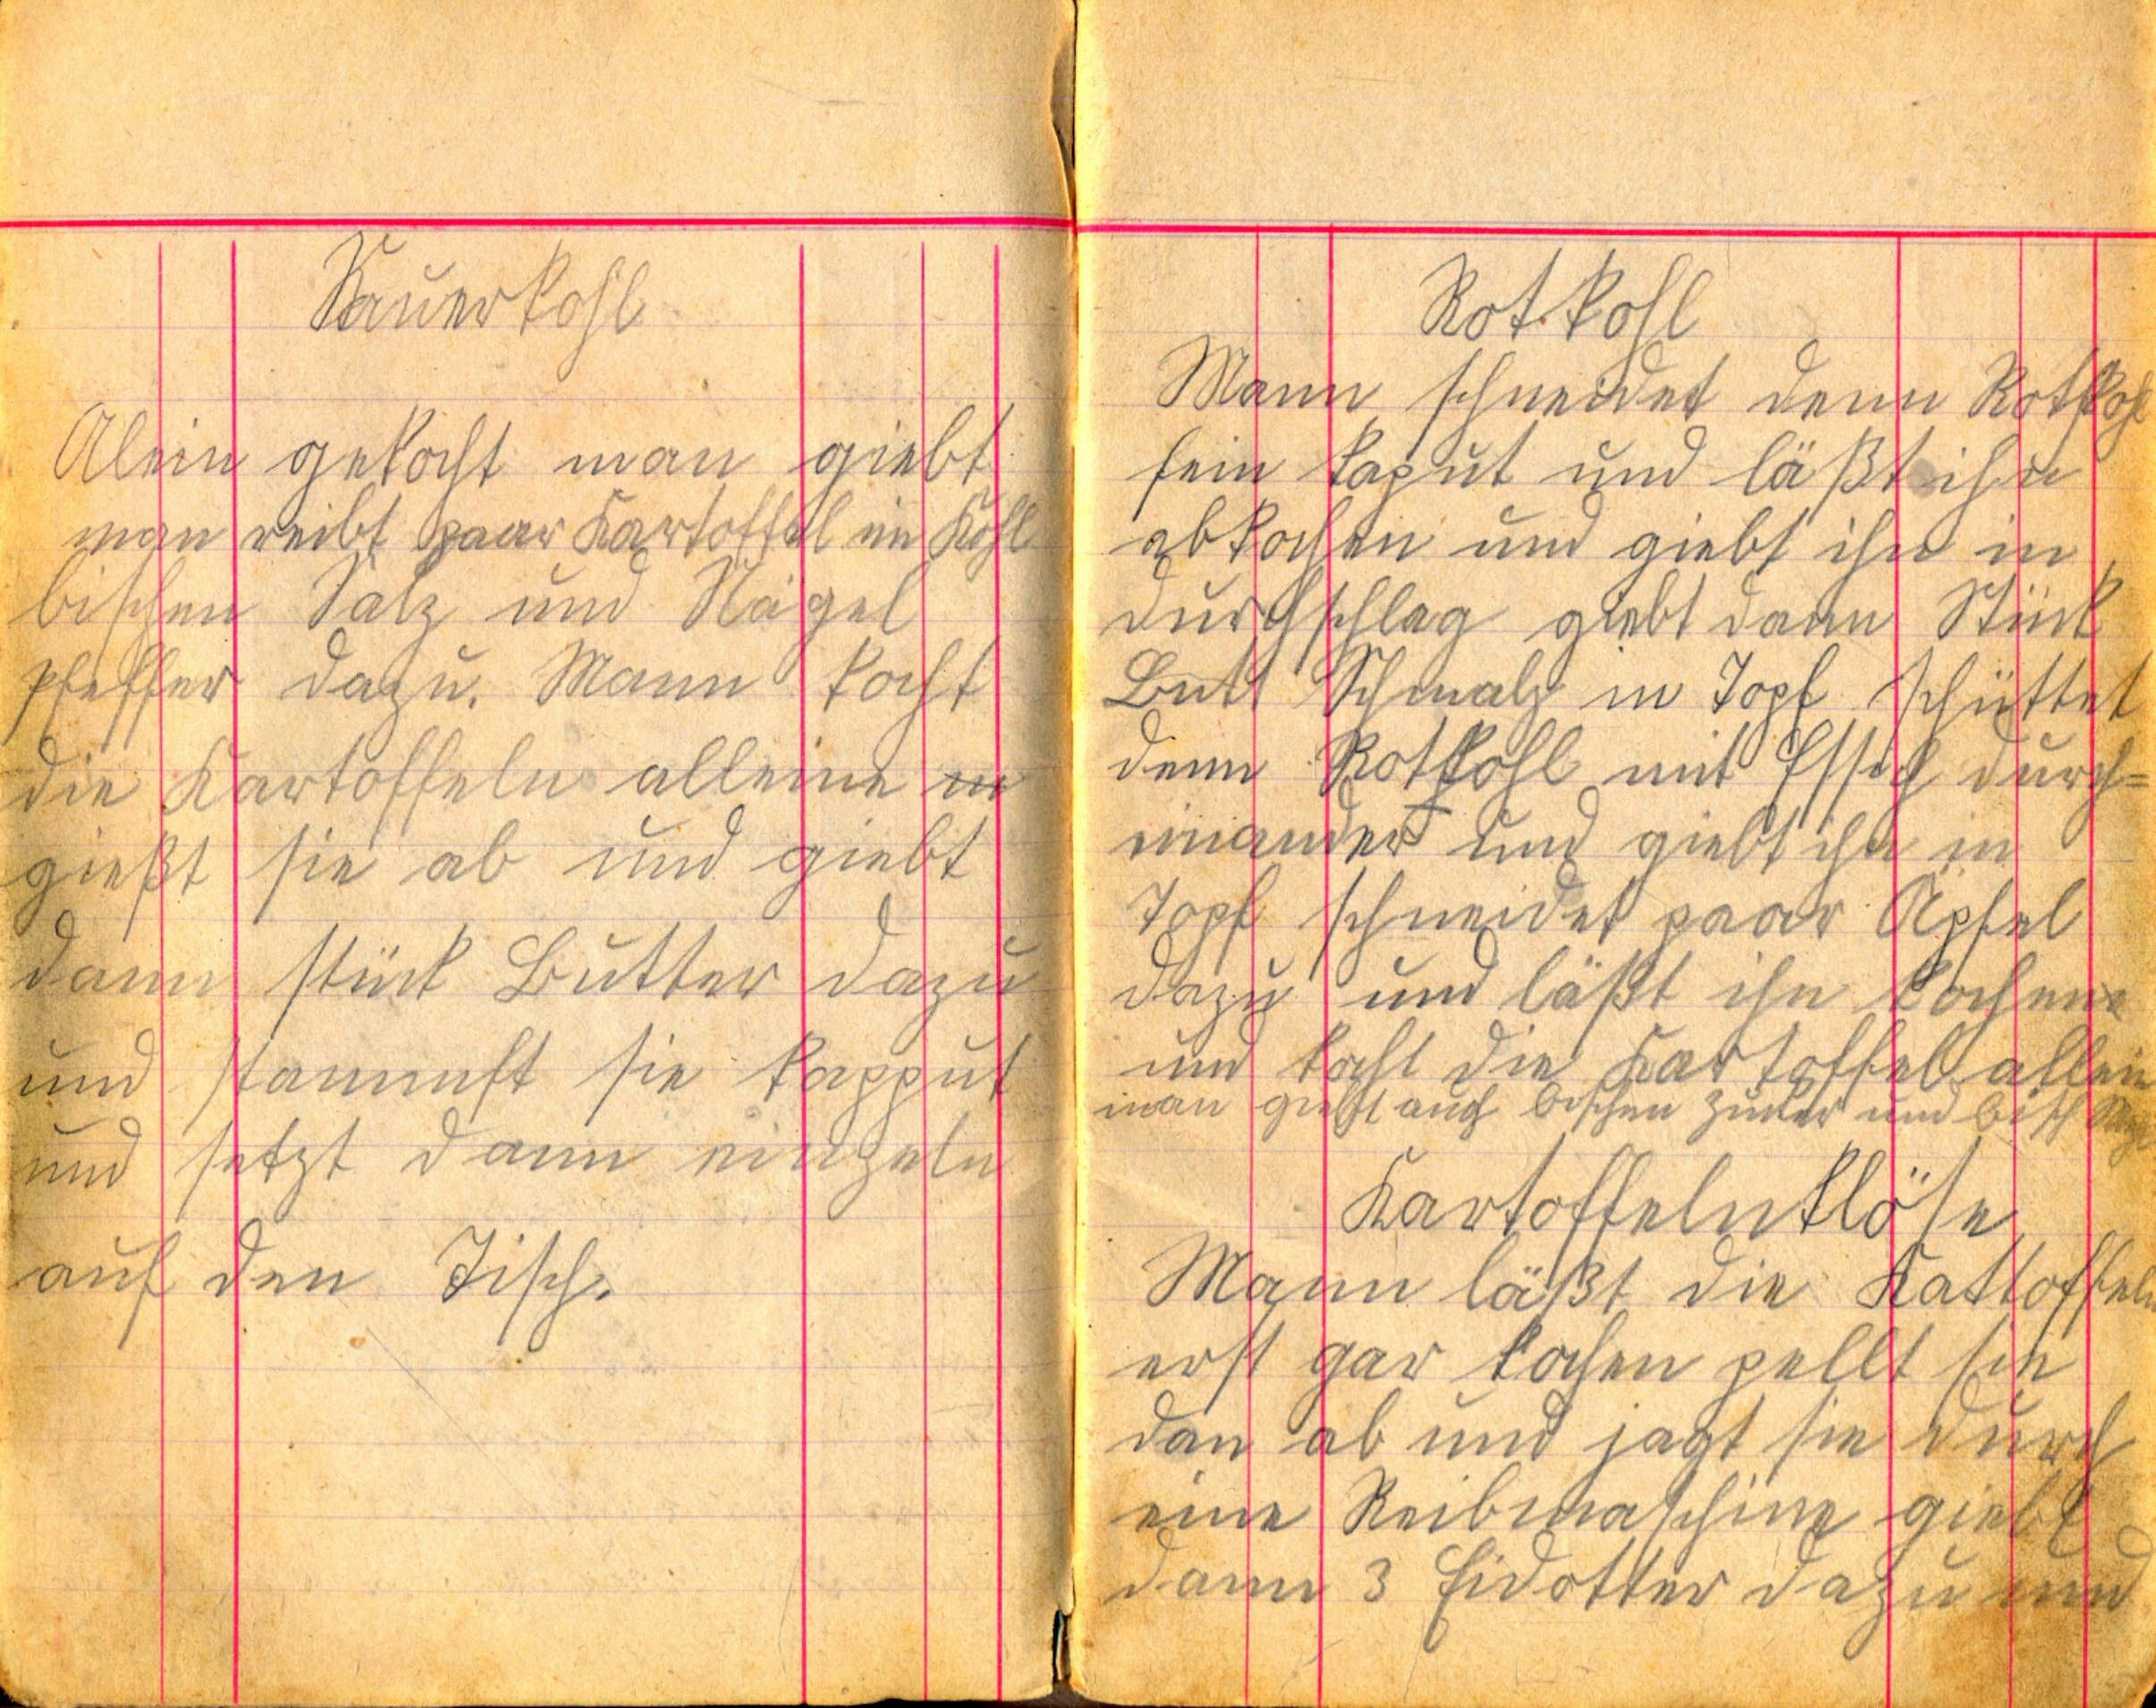 Sauerkohl
Alein gekocht man giebt
man reibt paar Kartoffel im Kohl
bischen Salz und Nägel
pfeffer dazu. Mann kocht
die Kartoffeln alleine
gießt sie ab und giebt
dann stück Butter dazu
und stammft sie kapput
und setzt dann einzeln
auf den Tisch.
Rotkohl
Mann schneidet denn Rotkohl
fein kaput und läßt ihn
abkochen und giebt ihn in
durchschlag giebt dann Stück
Butt Schmalz in Topf schüttet
denn Rotkohl mit Essich durch=
einander und giebt ihn in
Topf schneidet paar Äpfel
dazu und läßt ihn kochen
und kocht die Kartoffel allein
man giebt auch bischen Zucker und bisch
Kartoffelnklöse
Mann läßt die Kattoffeln
erst gar kochen pellt sie
dan ab und jagt sie durch
eine Reibmaschine giebt
dann 3 Eidotter dazu und